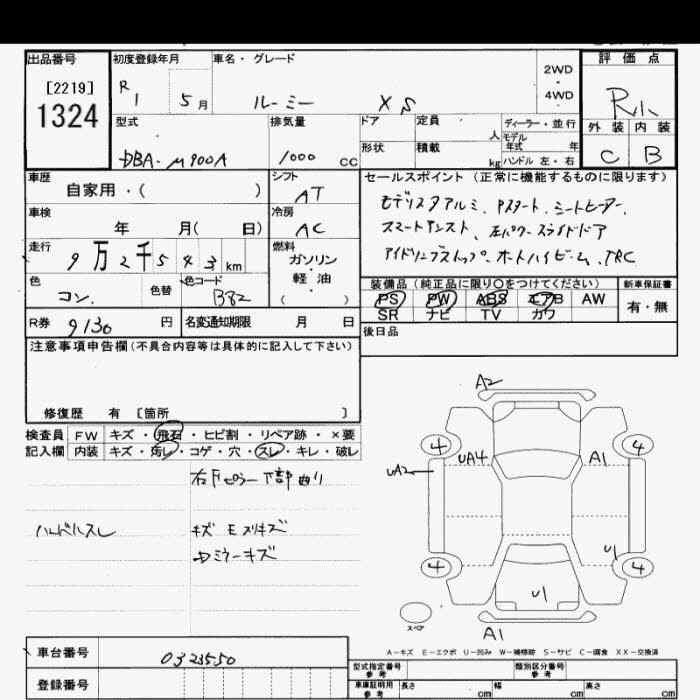 出品番号
[2219]
1324
初度登録年月
R 1 5月
車名・グレード
ルーミー XS
2WD
4WD
評価点
R小
外装 内装
C B
型式
DBA-M900A
排気量
1000 cc
ドア
定員 人
形状
積載 kg
ディーラー・並行
モデル年式 年
ハンドル 左・右
車歴
自家用・( )
シフト
AT
車検
年 月( 日)
冷房
AC
走行
9万2千543km
燃料
ガソリン・軽油・( )
色
コン.
色替
色コード
B82
R券 9130 円
名変通知期限 月 日
セールスポイント(正常に機能するものに限ります)
モデリスタアルミ、Pスタート、シートヒーター、
スマートアシスト、左パワースライドドア
アイドリングストップ、オートハイビーム、TRC
装備品(純正品に限り○をつけてください)
PS PW ABS エアB AW
SR ナビ TV カワ
新車保証書
有・無
後日品
注意事項申告欄(不具合内容等は具体的に記入して下さい)
修復歴 有 [箇所 ]
検査員記入欄
FW キズ・飛石・ヒビ割・リペア跡・×要
内装 キズ・汚レ・コゲ・穴・スレ・キレ・破レ
右Fピラー下部曲り
ハンドルスレ
キズ E スリキズ
ミラーキズ
A2
4
4
UA4
UA2
A1
U1
4
4
U1
A1
スペア
A-キズ E-エクボ U-凹み W-補修跡 S-サビ C-腐食 XX-交換済
車台番号
0323550
登録番号
型式指定番号 参考
類別区分番号 参考
車庫証明用 参考
長さ cm
幅 cm
高さ cm